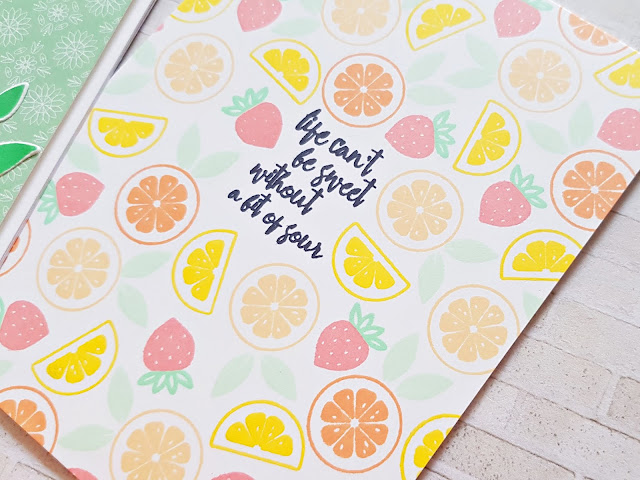 life can't
be sweet
without
a bit of sour